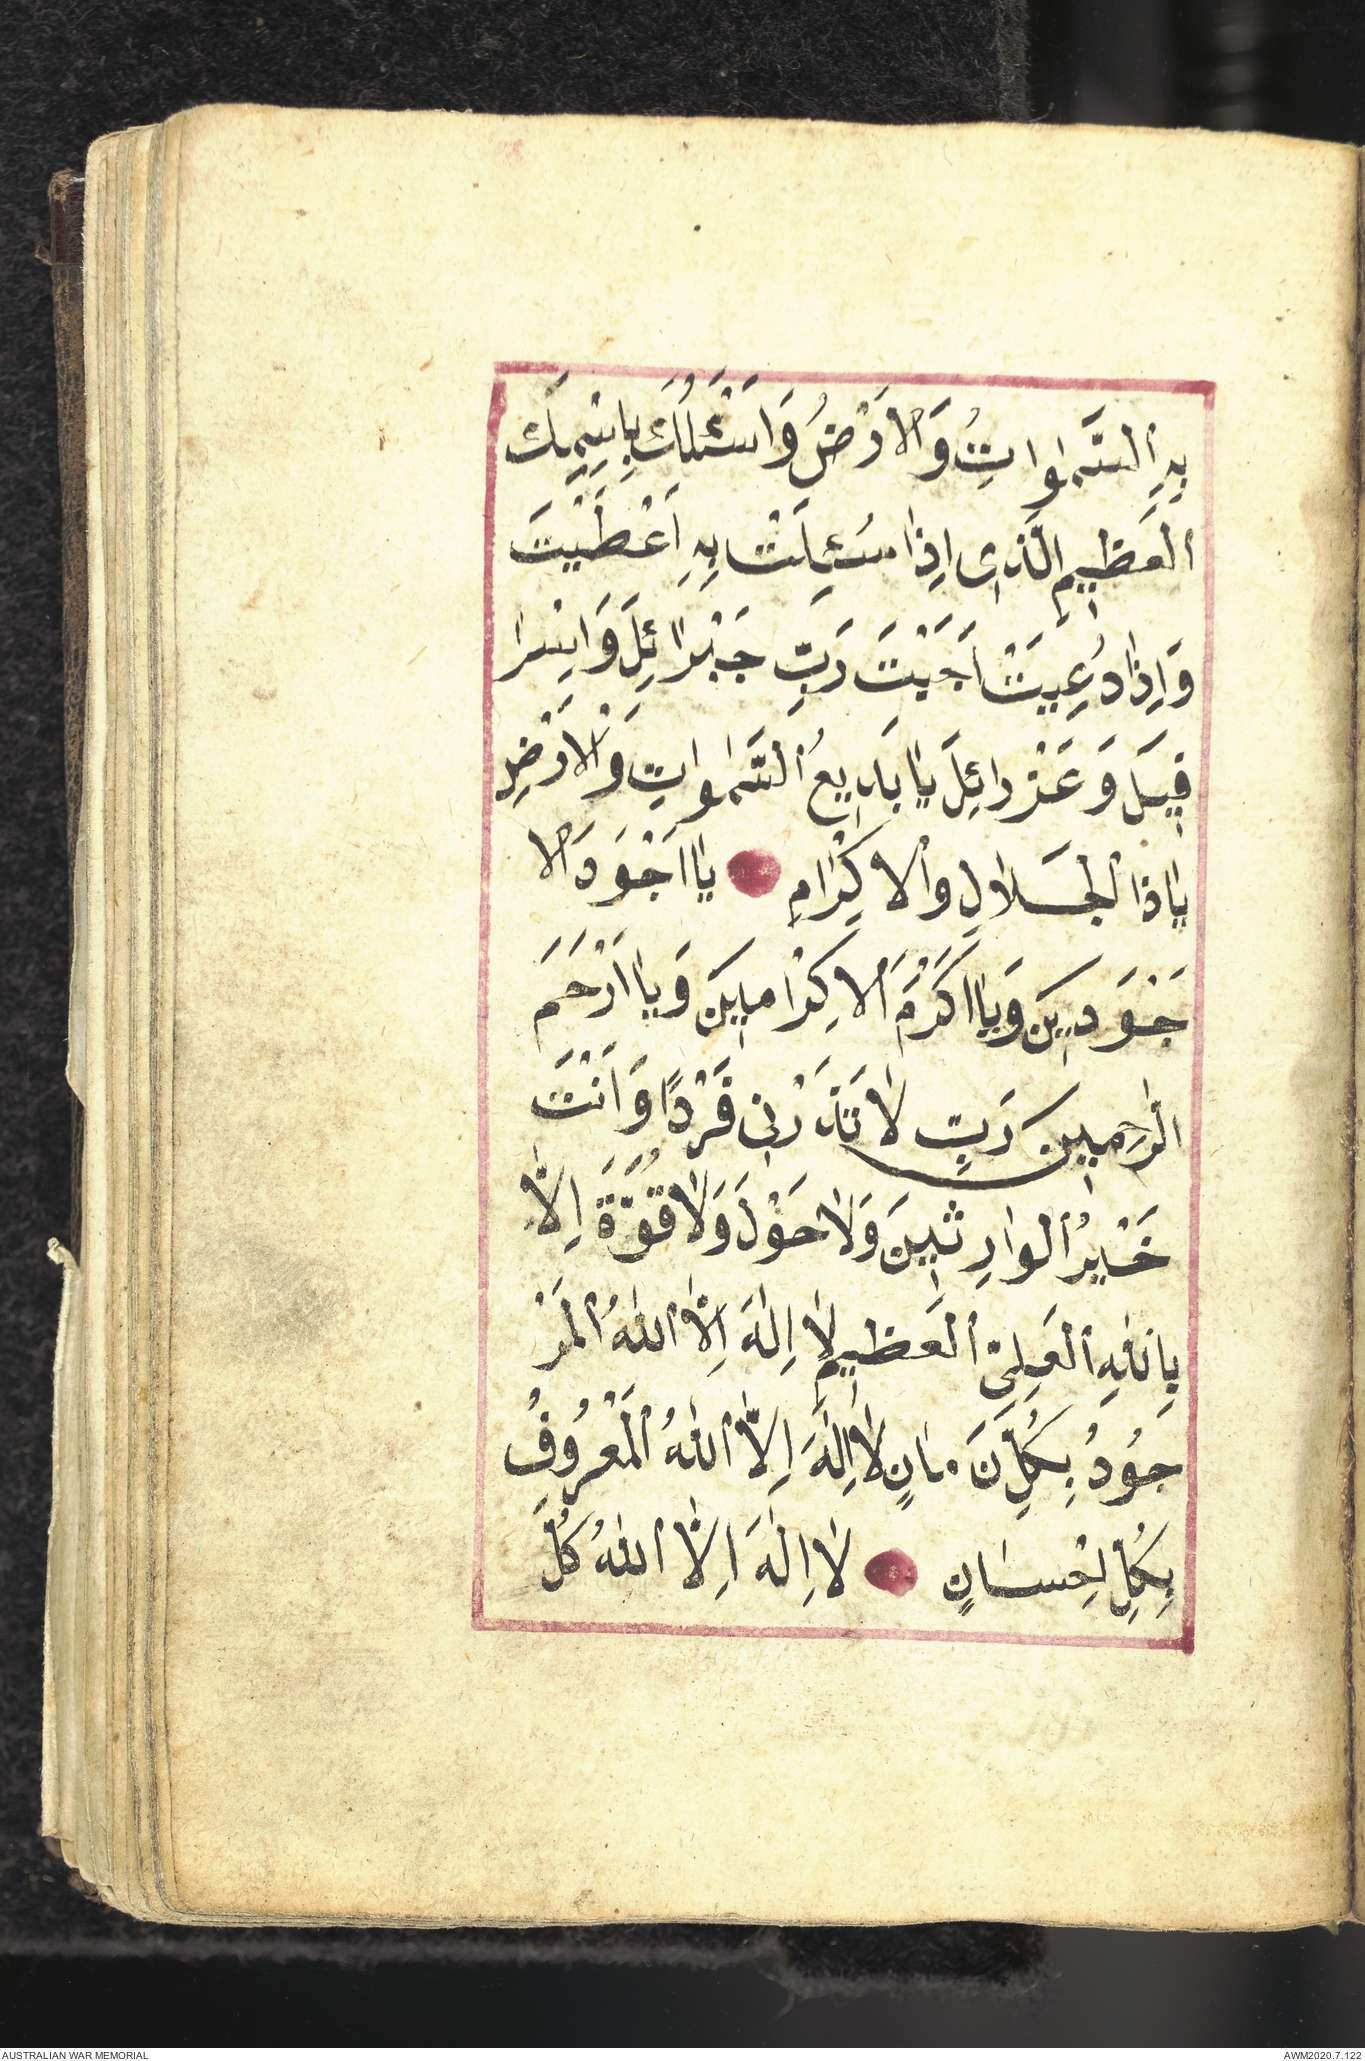 بِهِ السَّمٰوَاتُ وَالْاَرْضُ وَاَسْئَلُكَ بِاِسْمِكَ
الْعَظِيمِ الَّذِى اِذَا سُئِلَتْ بِهِ اَعْطَيْتَ
وَاِذَا دُعِيَتْ اَجَبْتَ رَبِّ جَبْرَائِلَ وَاِسْرَا
فِيلَ وَعَزْرَائِلَ يَا بَدِيعُ السَّمٰوَاتِ وَالْاَرْضِ
يَاذَا الْجَلَالِ وَالْاِكْرَامِ يَا اَجْوَدَ الَا
جْوَدِينَ وَيَا اَكْرَمَ الْاكِرَامِينَ وَيَا اَرْحَمَ
الرَّحِمِينَ رَبِّ لَا تَذَرْنِى فَرْدًا وَاَنْتَ
خَيْرُ الْوَارِثِينَ وَلَا حَوْلَ وَلَا قُوَّةَ اِلَّا
بِاللّٰهِ الْعَلِىِّ الْعَظِيمِ لَا اِلٰهَ اِلَّا اللّٰهُ الْمَوْ
جُودُ بِكُلِّ زَمَانٍ لَا اِلٰهَ اِلَّا اللّٰهُ الْمَعْرُوفُ
بِكُلِّ اِحْسَانٍ لَا اِلٰهَ اِلَّا اللّٰهُ كُلَّ
AUSTRALIAN WAR MEMORIAL
AWM2020.7.122